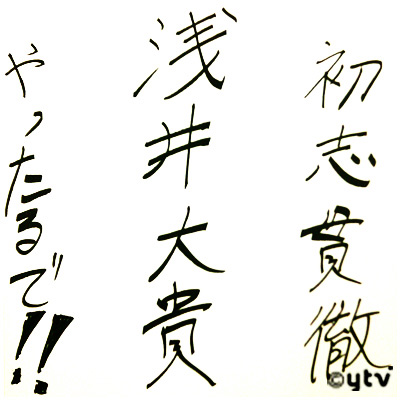 初志貫徹
浅井大貴
やったるで!!
©ytv